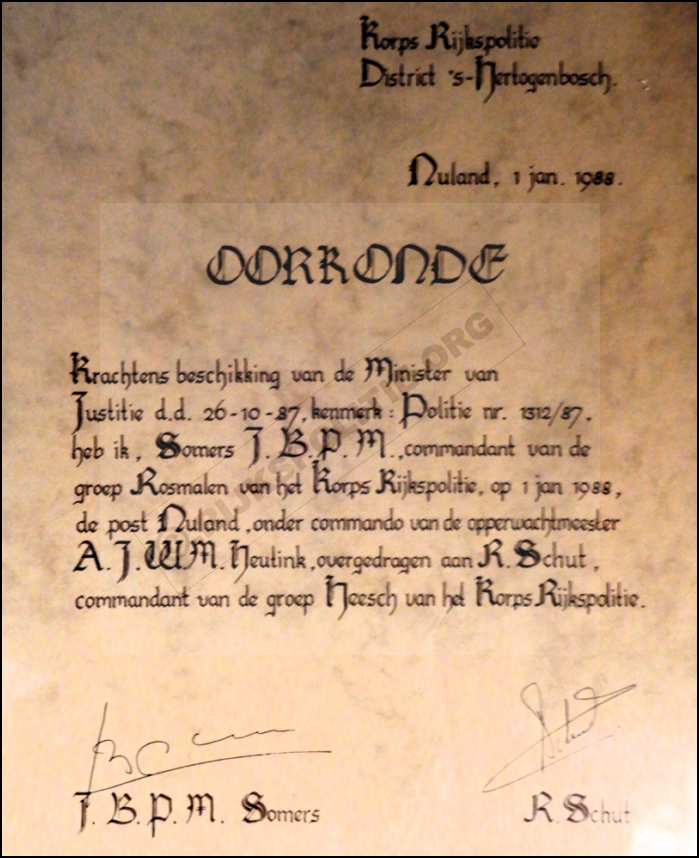 Korps Rijkspolitie
District 's-Hertogenbosch.
Nuland, 1 jan. 1988.
OORKONDE
Krachtens beschikking van de Minister van
Justitie d.d. 26-10-87, kenmerk: Politie nr. 1312/87,
heb ik, Somers J.B.P.M., commandant van de
groep Rosmalen van het Korps Rijkspolitie, op 1 jan 1988,
de post Nuland, onder commando van de opperwachtmeester
A.J.W.M. Heutink, overgedragen aan R. Schut,
commandant van de groep Heesch van het Korps Rijkspolitie.
J.B.P.M. Somers
R. Schut